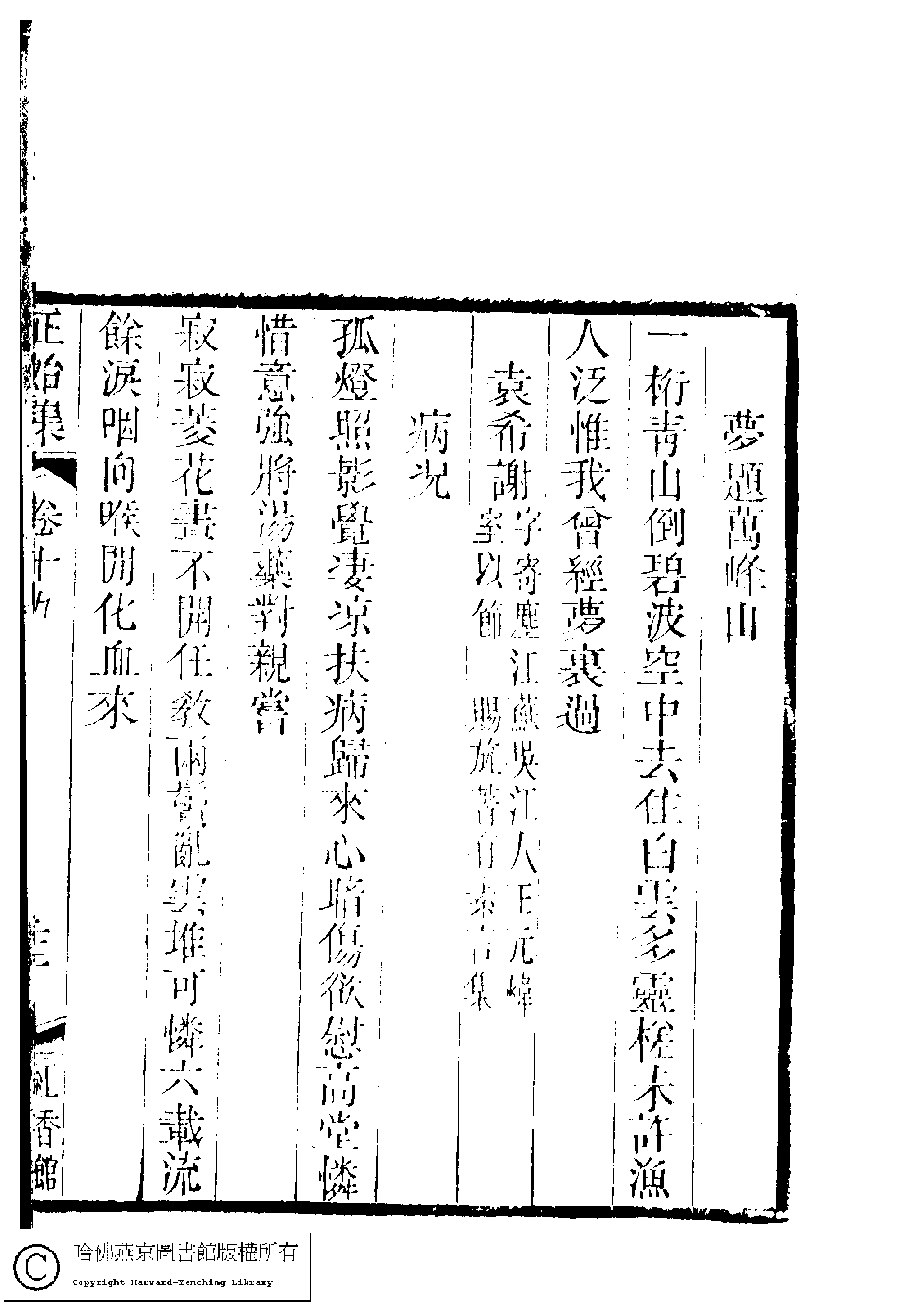 夢題萬峰山
一桁青山倒碧波空中去住白雲多靈槎未許漁
人泛惟我曾經夢裏過
袁希謝字寄塵江蘇吳江人王元煒
室以節 賜旌著有素言集
病况
孤燈照影覺凄凉扶病歸來心暗傷欲慰高堂憐
惜意強將湯藥對親嘗
寂寂菱花晝不開任教兩鬢亂雲堆可憐六載流
餘淚咽向喉間化血來
正始集 卷十
香館
哈佛燕京圖書館版權所有
Copyright Harvard-Yenching Library